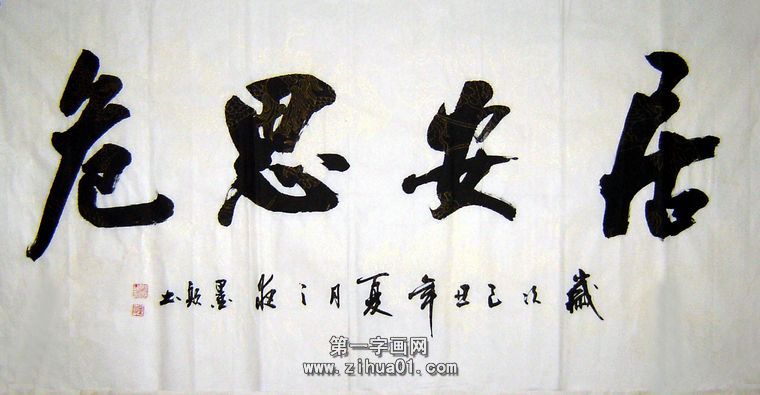 居安思危
歲次己丑年夏月之
第一字画网
www.zihua01.com